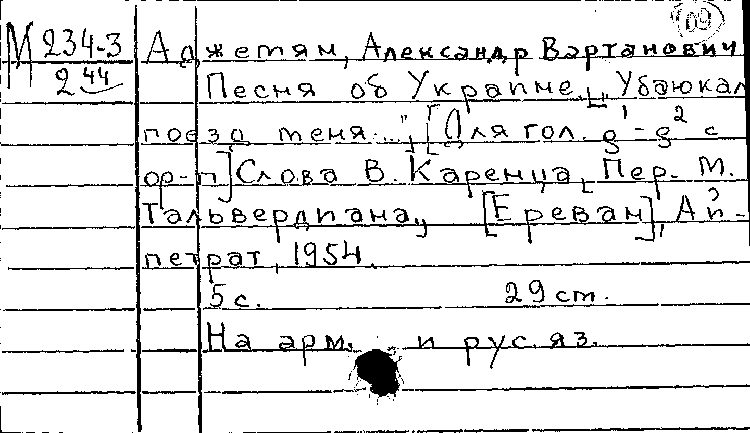 109
М 234-3 Аджемян, Александр Вартанович
2 44 Песня об Украине. „Убаюкал
поезд меня...", [Для гол. g¹-g² с
ор-п] Слова В. Каренца, Пер. М.
Тальвердиана, [Ереван], Ай-
петрат, 1954.
5 с. 29 ст.
На арм. и рус. яз.